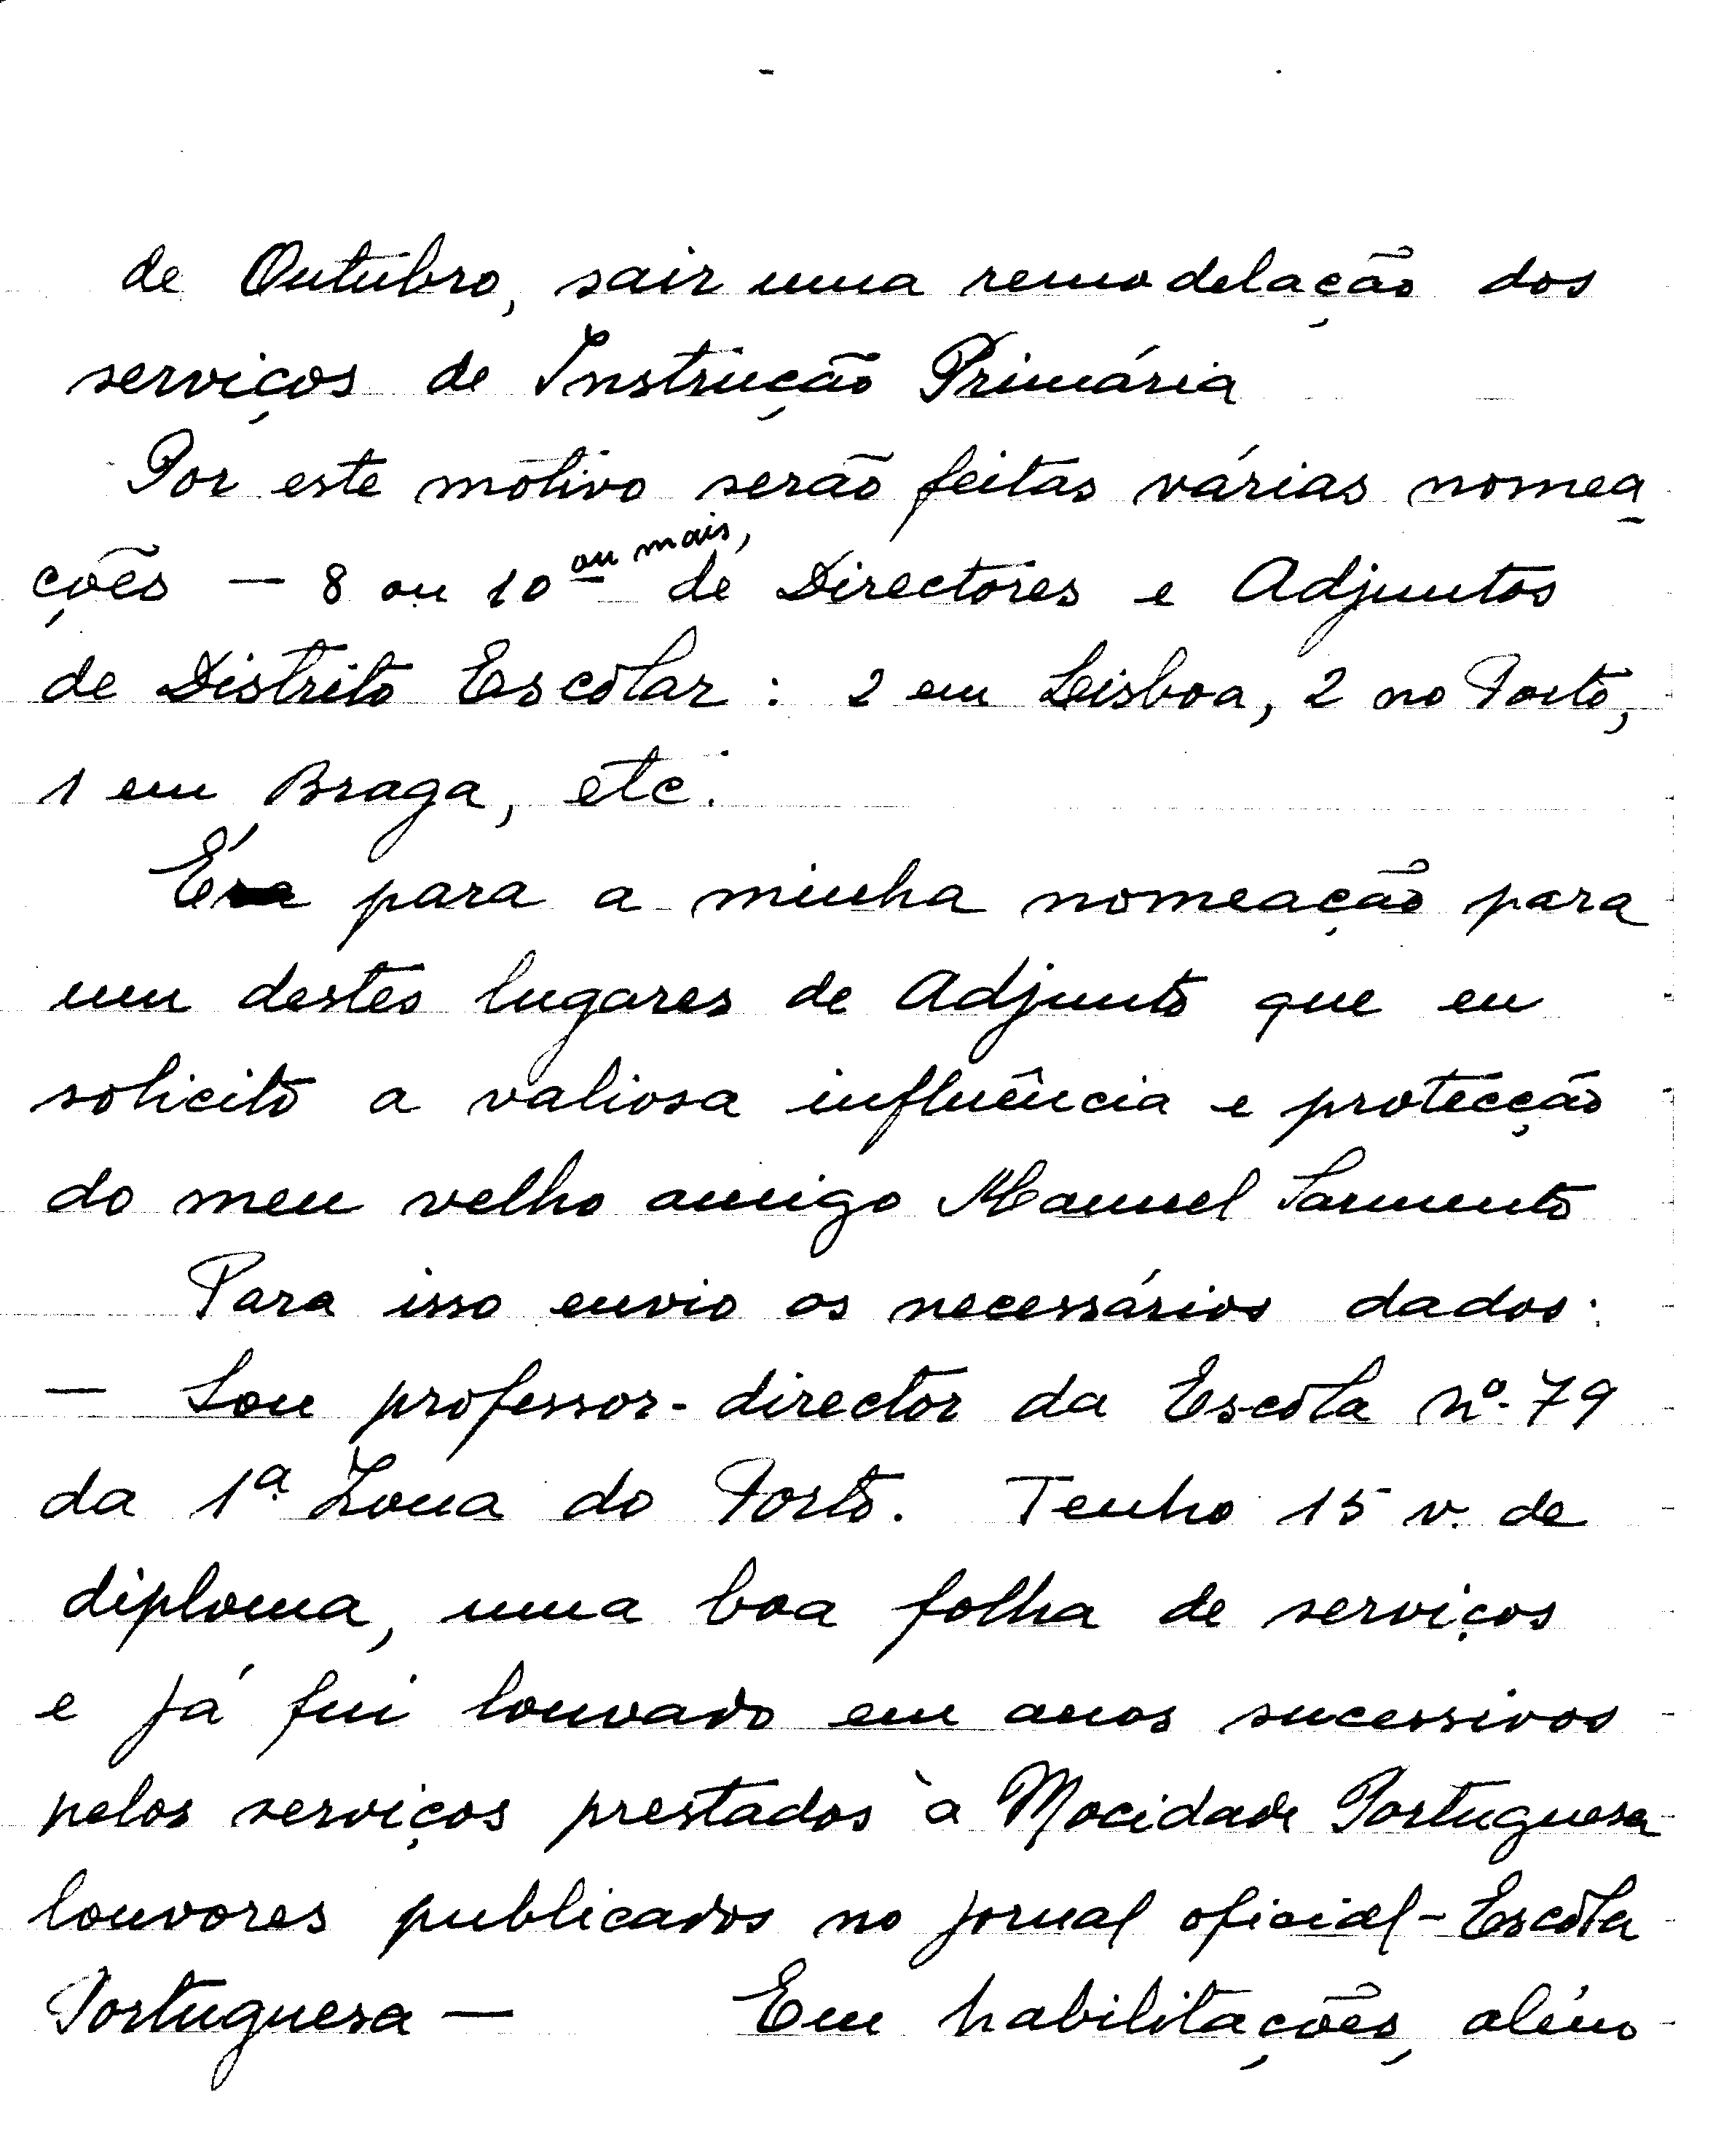 de Outubro, sair uma remodelação dos
serviços de Instrução Primária
Por este motivo serão feitas várias nomea
ções — 8 ou 10 ou mais, de Directores e Adjuntos
de Distrito Escolar : 2 em Lisboa, 2 no Porto,
1 em Braga, etc.
É para a minha nomeação para
um destes lugares de Adjunto que eu
solicito a valiosa influência e protecção
do meu velho amigo Manuel Sarmento
Para isso envio os necessários dados:
— Sou professor-director da Escola nº. 79
da 1ª Zona do Porto. Tenho 15 v. de
diploma, uma boa folha de serviços
e já fui louvado em anos sucessivos
pelos serviços prestados à Mocidade Portuguesa
louvores publicados no jornal oficial - Escola
Portuguesa — Em habilitações, além